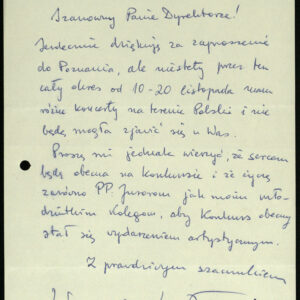 Szanowny Panie Dyrektorze!
Serdecznie dziękuję za zaproszenie
do Poznania, ale niestety przez ten
cały okres od 10-20 listopada mam
różne koncerty na terenie Polski i nie
będę mogła zjawić się u Was.
Proszę mi jednak wierzyć, że sercem
będę obecna na Konkursie i że życzę
zarówno PP. Jurorom jak moim mło-
dziutkim Kolegom, aby Konkurs obecny
stał się wydarzeniem artystycznym.
Z prawdziwym szacunkiem